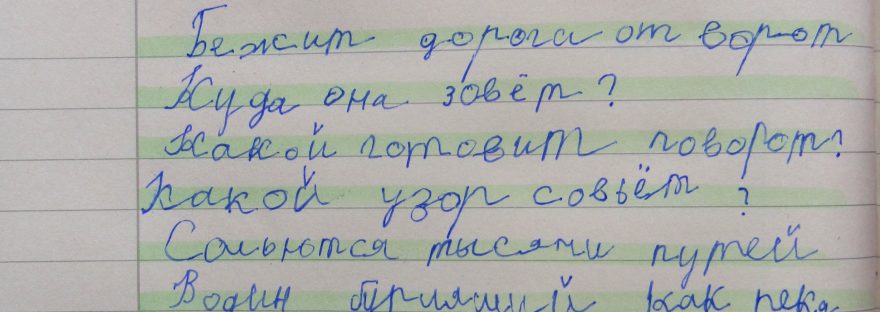 Бежит дорога от ворот
Куда она зовёт?
Какой готовит поворот?
Какой узор совьёт ?
Сольются тысячи путей
В один как река